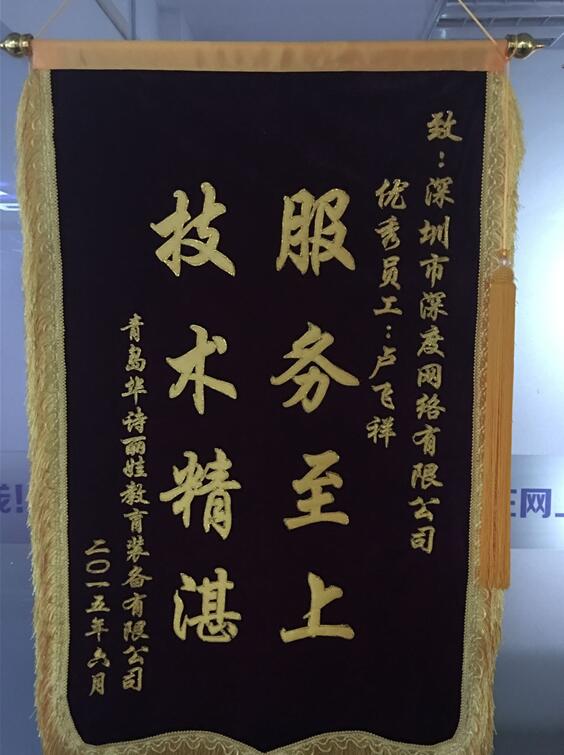 致：深圳市深度网络有限公司
优秀员工：卢飞祥
服务至上
技术精湛
青岛华诗丽娃教育装备有限公司
二〇一五年六月
钱!
在网上